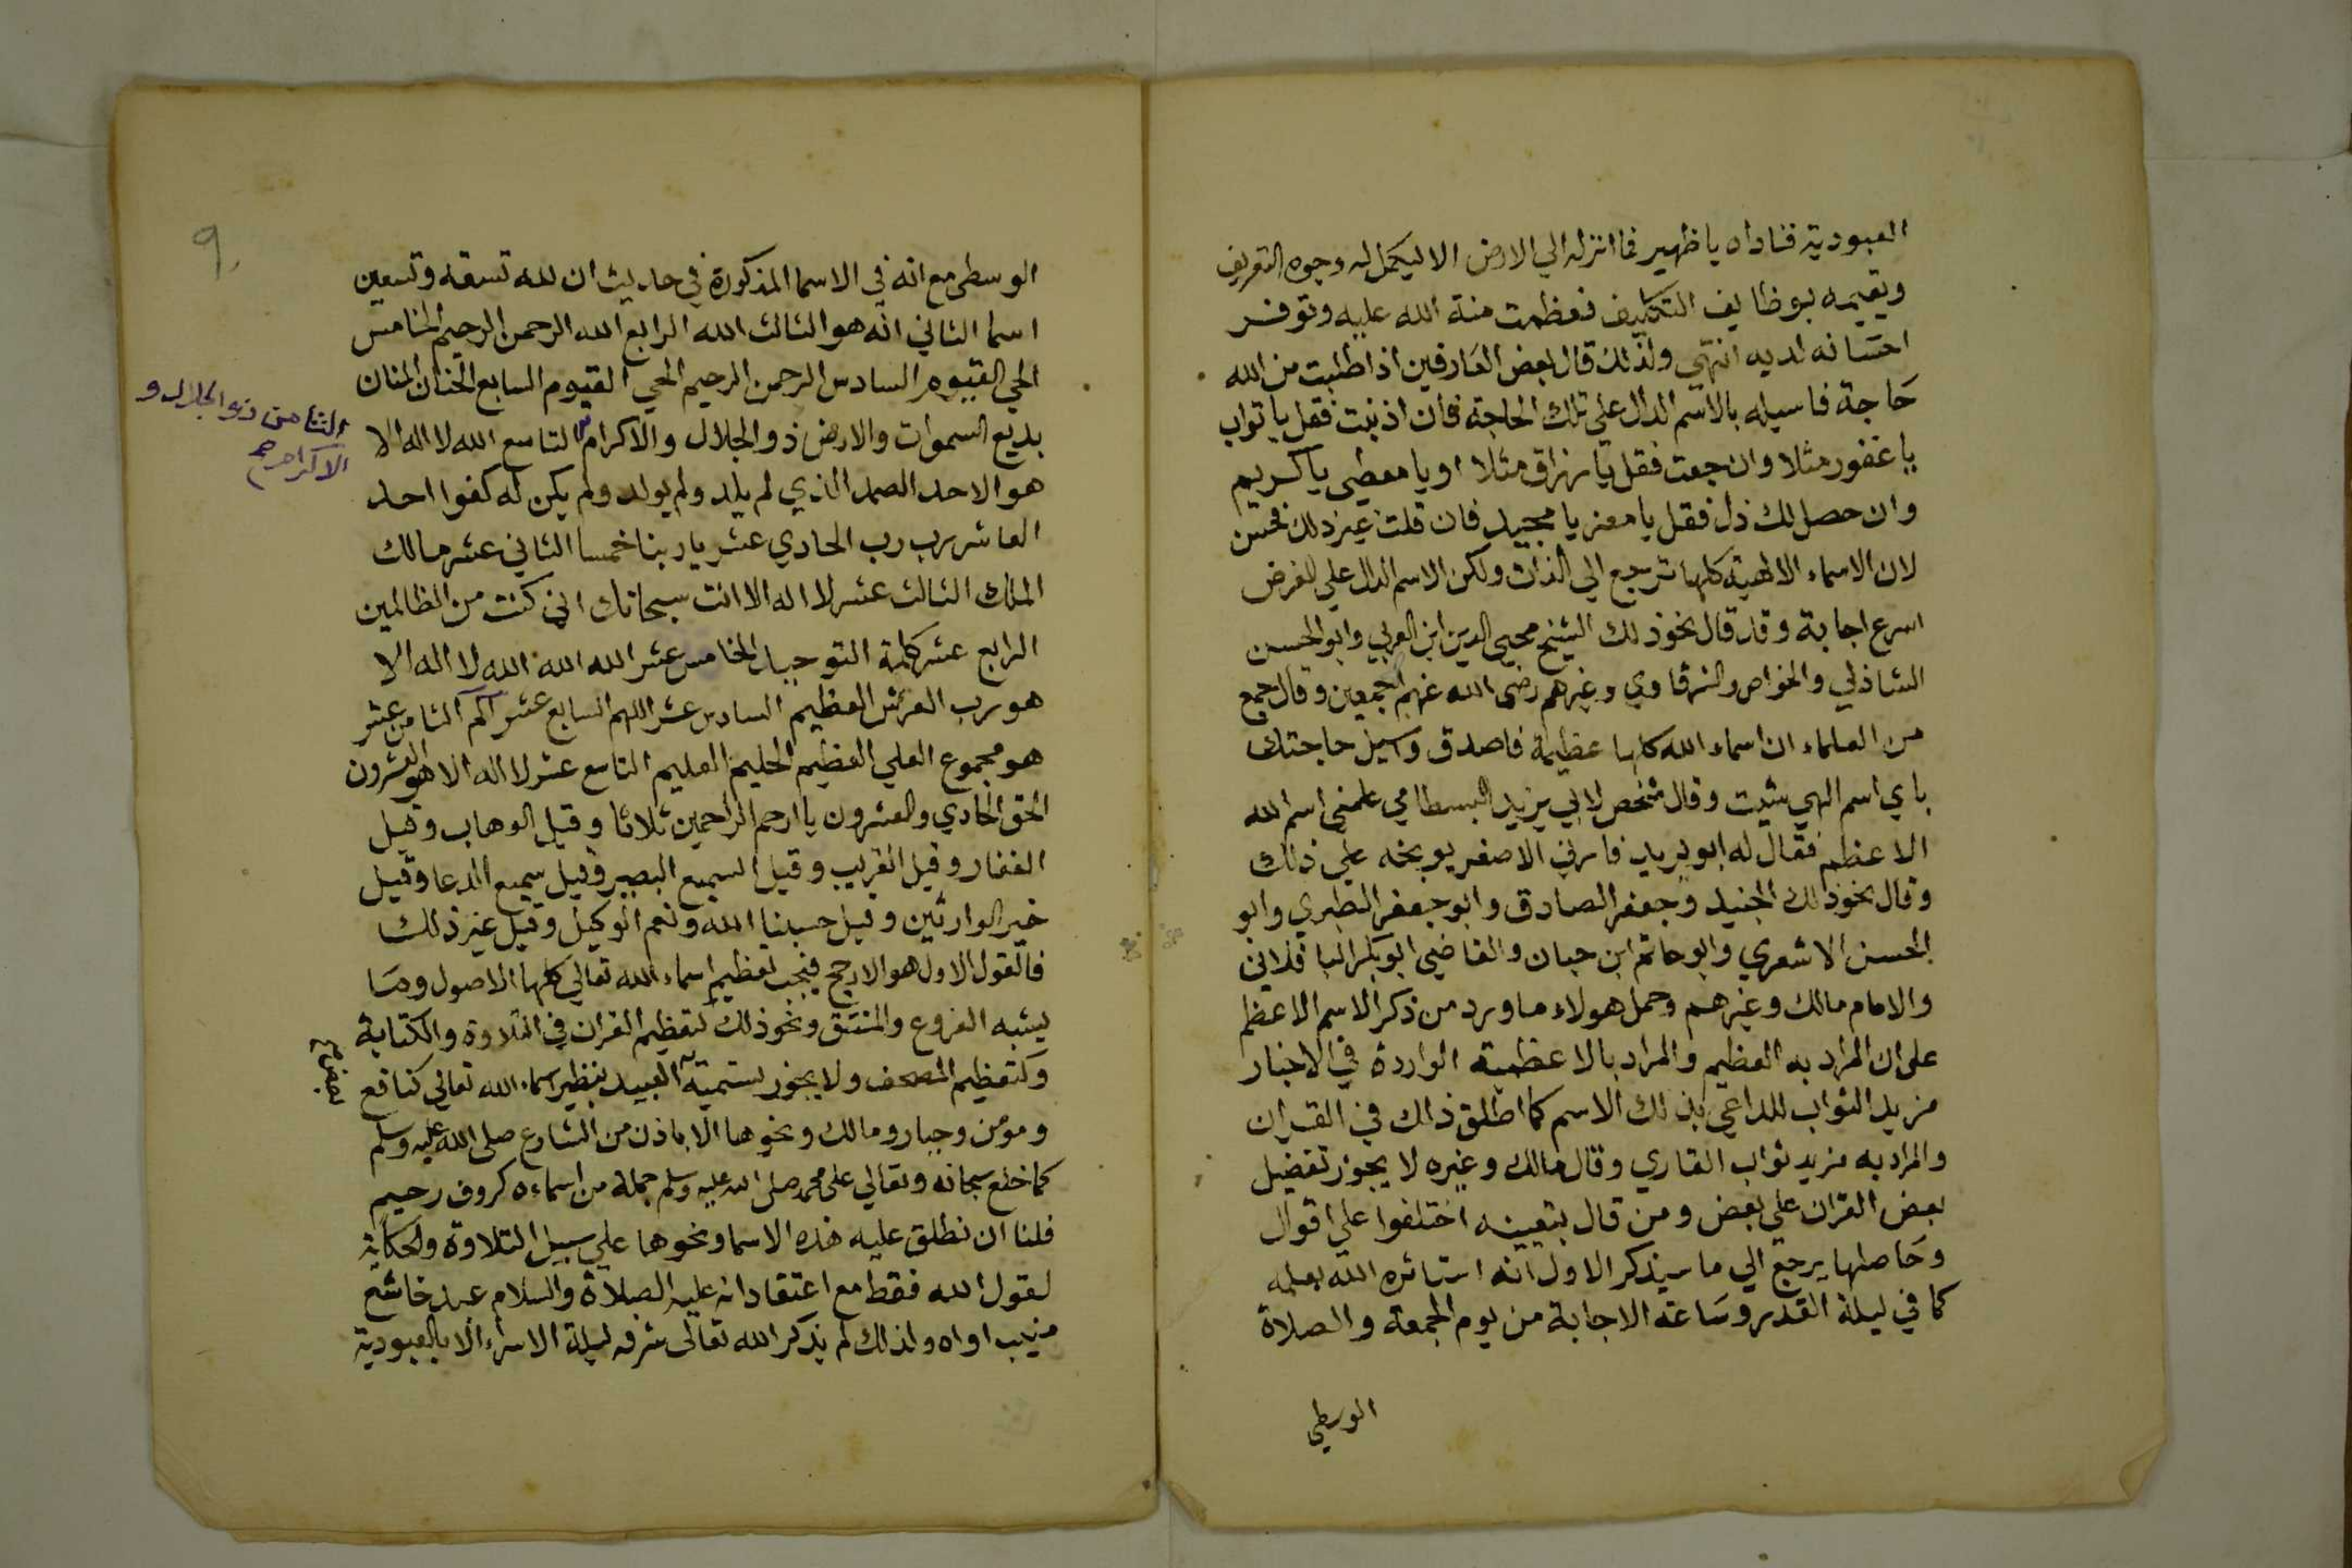 العبودية فناداه يا ظهير فما انزله الي الارض الا ليكمل له وجوه التعريف
ويقيمه بوظايف التكليف فعظمت منة الله عليه وتوفر
احسانه لديه انتهي ولذلك قال بعض العارفين اذا طلبت من الله
حاجة فاسيله بالاسم الدال علي تلك الحاجة فان اذنبت فقل يا تواب
يا غفور مثلا وان جعت فقل يا رزاق مثلا او يا معطي يا كريم
وان حصل لك ذل فقل يا معز يا مجيد فان قلت غير ذلك فحسن
لان الاسماء الالهية كلها ترجع الي الذات ولكن الاسم الدال علي الغرض
اسرع اجابة وقد قال نحو ذلك الشيخ محيي الدين ابن العربي وابو الحسن
الشاذلي والخواص والشرقاوي وغيرهم رضي الله عنهم اجمعين وقال جمع
من العلماء ان اسماء الله كلها عظيمة فاصدق وأسيل حاجتك
باي اسم الهي شيت وقال شخص لابي يزيد البسطامي علمني اسم الله
الاعظم فقال له ابو يزيد فارني الاصغر يوبخه علي ذلك
وقال نحو ذلك الجنيد وجعفر الصادق وابو جعفر الطبري وابو
الحسن الاشعري وابو حاتم ابن حبان والقاضي ابو بكر الباقلاني
والامام مالك وغيرهم وحمل هولاء ما ورد من ذكر الاسم الاعظم
على ان المراد به العظيم والمراد بالاعظمية الواردة في الاخبار
مزيد الثواب للداعي بذلك الاسم كما اطلق ذالك في القران
والمراد به مزيد ثواب القاري وقال مالك وغيره لا يجوز تفضيل
بعض القران علي بعض ومن قال بتعيينه اختلفوا علي اقوال
وحاصلها يرجع الي ما سيذكر الاول انه استاثره الله بعلمه
كما في ليلة القدر وساعة الاجابة من يوم الجمعة والصلاة
الوسطي
٩
الوسطى مع انه في الاسما المذكورة في حديث ان لله تسعة وتسعين
اسما الثاني انه هو الثالث الله الرابع الله الرحمن الرحيم الخامس
الحي القيوم السادس الرحمن الرحيم الحي القيوم السابع الحنان المنان
بديع السموات والارض ذو الجلال والاكرام التاسع الله لا اله الا
الثامن ذو الجلال و
الاكرام صح
هو الاحد الصمد الذي لم يلد ولم يولد ولم يكن له كفوا احد
العاشر رب رب الحادي عشر يا ربنا خمسا الثاني عشر مالك
الملك الثالث عشر لا اله الا انت سبحانك اني كنت من الظالمين
الرابع عشر كلمة التوحيد الخامس عشر الله الله الله لا اله الا
هو رب العرش العظيم السادس عشر اللهم السابع عشر الم الثامن عشر
هو مجموع العلي العظيم الحليم العليم التاسع عشر لا اله الا هو العشرون
الحق الحادي والعشرون يا ارحم الراحمين ثلاثا وقيل الوهاب وقيل
الغفار وقيل القريب وقيل السميع البصير وقيل سميع الدعا وقيل
خير الوارثين وقيل حسبنا الله ونعم الوكيل وقيل غير ذلك
فالقول الاول هو الارجح فيجب تعظيم اسماء الله تعالي كلها الاصول وما
يشبه الفروع والمشتق ونحو ذلك كتعظيم القران في التلاوة والكتابة
وكتعظيم المصحف ولا يجوز تسمية العبيد بنظير اسماء الله تعالي كنافع
ومومن وجبار ومالك ونحوها الا باذن من الشارع صلى الله عليه وسلم
كما خلع سبحانه وتعالي على محمد صلى الله عليه وسلم جملة من اسماءه كروف رحيم
فلنا ان نطلق عليه هذه الاسما ونحوها علي سبيل التلاوة والحكاية
لقول الله فقط مع اعتقاد انه عليه الصلاة والسلام عبد خاشع
منيب اواه ولذلك لم يذكر الله تعالى شرفه ليلة الاسراء الا بالعبودية